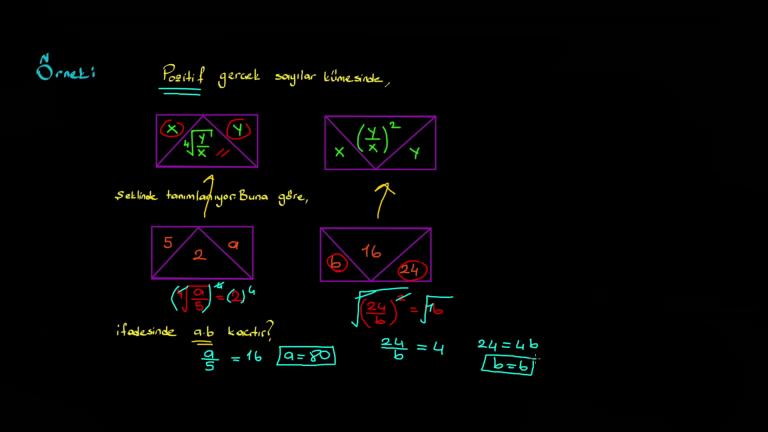 Örnek:
Pozitif gerçek sayılar kümesinde,
x ⁴√(y/x) y
x (y/x)² y
şeklinde tanımlanıyor. Buna göre,
5 2 a
b 16 24
(⁴√(a/5))⁴ = (2)⁴
√(24/b)² = √16
ifadesinde a.b kaçtır?
a/5 = 16 a = 80
24/b = 4 24 = 4b
b = 6